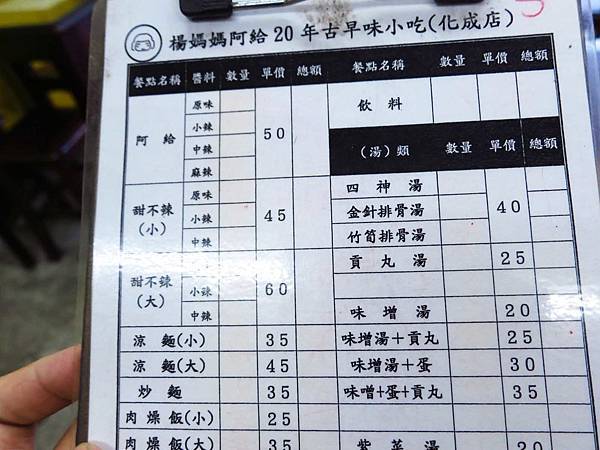 楊媽媽阿給20年古早味小吃(化成店)
餐點名稱 醬料 數量 單價 總額 餐點名稱 數量 單價 總額
阿給 原味 小辣 中辣 麻辣 50 飲料
（湯）類 數量 單價 總額
甜不辣(小) 原味 小辣 中辣 45 四神湯 40
金針排骨湯
竹筍排骨湯
甜不辣(大) 小辣 中辣 60 貢丸湯 25
味增湯 20
涼麵(小) 35 味增湯+貢丸 25
涼麵(大) 45 味增湯+蛋 30
炒麵 35 味噌+蛋+貢丸 35
肉燥飯(小) 25
肉燥飯(大) 35 紫菜湯 20